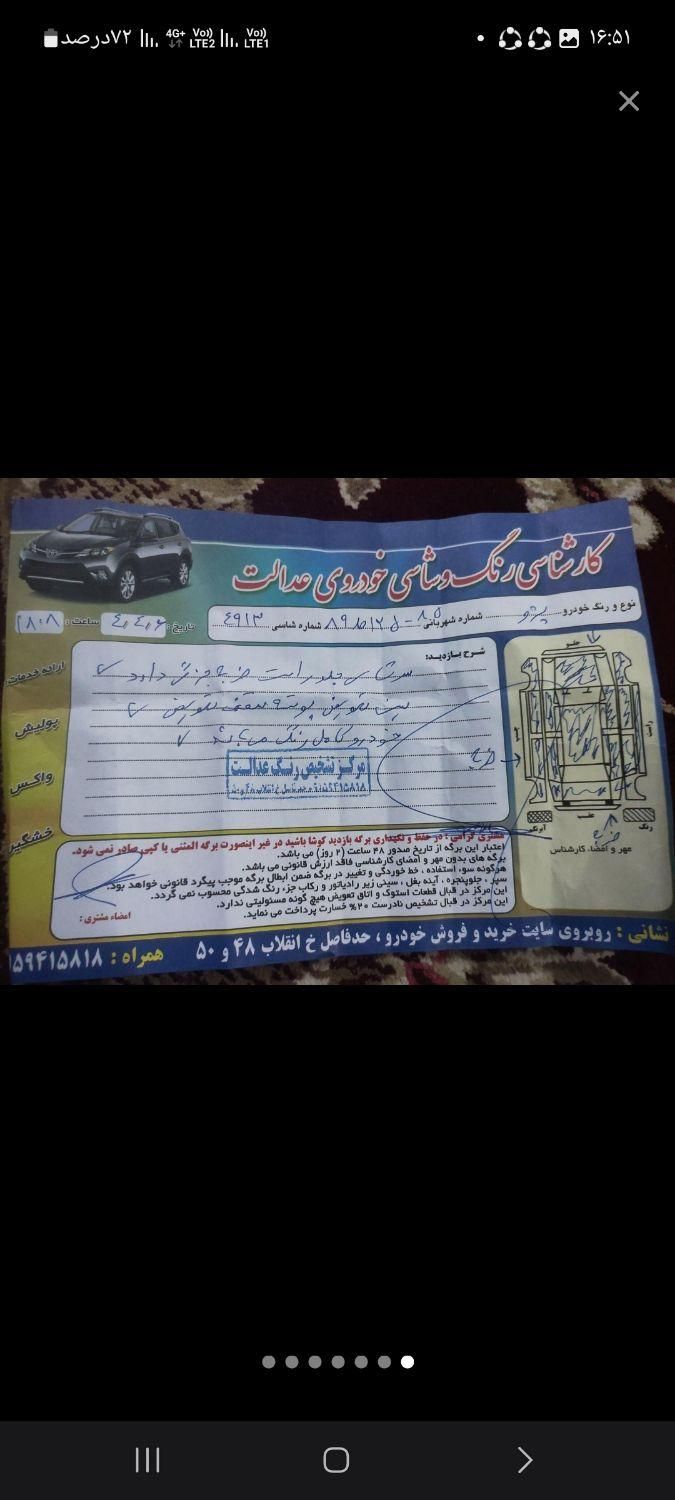 ۱۶:۵۱
۷۲درصد
4G+ Vo)) LTE2 Vo)) LTE1
کارشناسی رنگ وشاسی خودروی عدالت
نوع و رنگ خودرو پژو شماره شهربانی شماره شاسی ۴۹۱۳ تاریخ: ساعت: ۱۸:۰۸
شرح بازدید:
جلو راست ضربه جزئی دارد
تعویض سقف تعویض
خودرو کامل رنگ می باشد
مرکز تشخیص رنگ عدالت
ارائه خدمات:
پولیش
واکس
خشگیر
جلو
راست
عقب
رنگ
آبرنگ
مهر و امضاء کارشناس
مشتری گرامی: در حفظ و نگهداری برگه بازدید کوشا باشید در غیر اینصورت برگه المثنی یا کپی صادر نمی شود.
اعتبار این برگه از تاریخ صدور ۴۸ ساعت (۲ روز) می باشد.
برگه های بدون مهر و امضای کارشناسی فاقد ارزش قانونی می باشد.
هرگونه سوء استفاده ، خط خوردگی و تغییر در برگه ضمن ابطال برگه موجب پیگرد قانونی خواهد بود.
سپر ، جلوپنجره ، آینه بغل ، سینی زیر رادیاتور و رکاب جزء رنگ شدگی محسوب نمی گردد.
این مرکز در قبال قطعات استوک و اتاق تعویض هیچ گونه مسئولیتی ندارد.
این مرکز در قبال تشخیص نادرست ۲۰% خسارت پرداخت می نماید.
امضاء مشتری :
نشانی : روبروی سایت خرید و فروش خودرو ، حدفاصل خ انقلاب ۴۸ و ۵۰ همراه : ۱۵۹۴۱۵۸۱۸